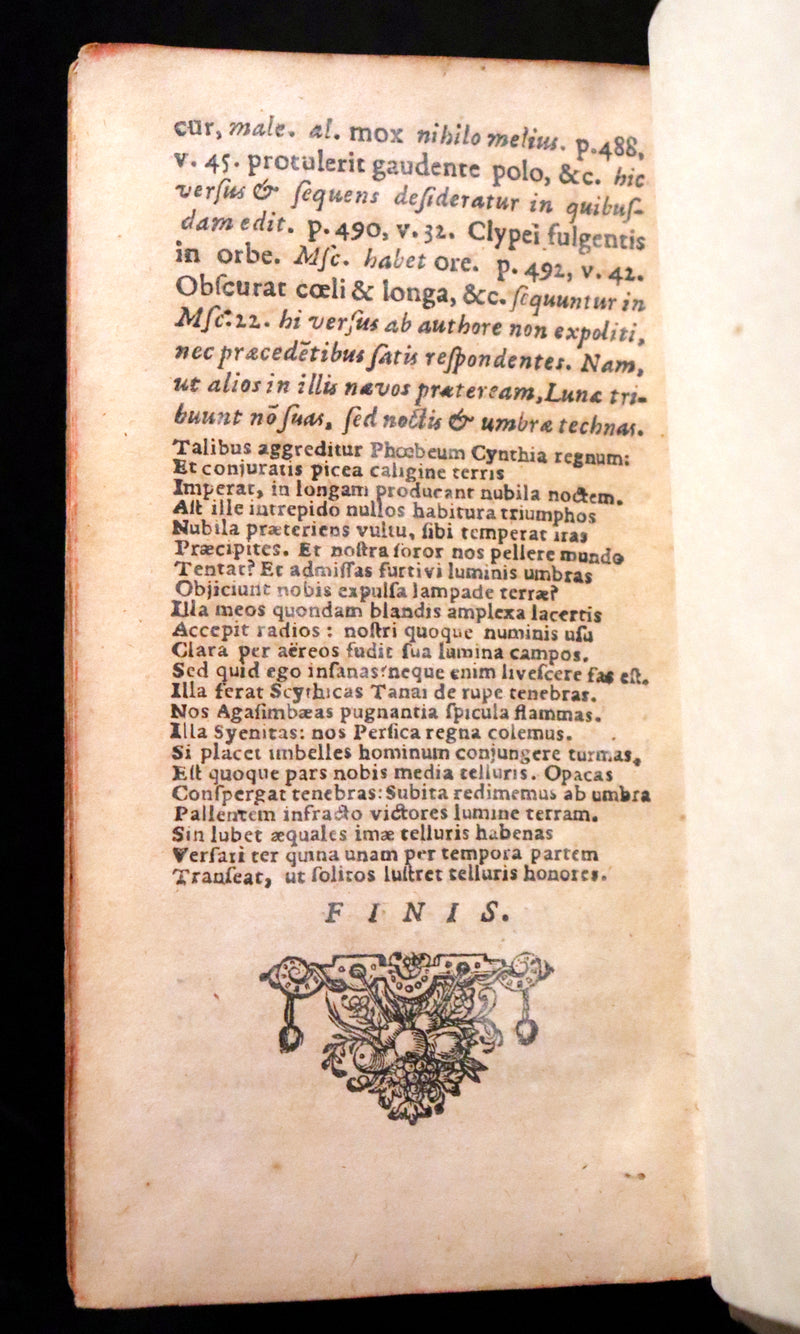 cur, male. al. mox nihilo melius. p.488,
v. 45. protulerit gaudente polo, &c. hic
versus & sequens desideratur in quibuſ-
dam edit. p. 490, v. 32. Clypei fulgentis
in orbe. Mſc. habet ore. p. 492, v. 42.
Obſcurat cœli & longa, &c. ſequuntur in
Mſc. 22. hi verſus ab authore non expoliti,
nec præcedẽtibus ſatis reſpondentes. Nam,
ut alios in illis nævos præteream, Lunæ tri-
buunt nõ ſuas, ſed noctis & umbræ technas.
Talibus aggreditur Phœbeum Cynthia regnum:
Et conjuratis picea caligine terris
Imperat, in longam producant nubila noctem.
Aſt ille intrepido nullos habitura triumphos
Nubila præteriens vultu, ſibi temperat iras
Præcipites. Et noſtra ſoror nos pellere mundo
Tentat? Et admiſſas furtivi luminis umbras
Objiciunt nobis expulſa lampade terræ?
Illa meos quondam blandis amplexa lacertis
Accepit radios : noſtri quoque numinis uſu
Clara per aëreos fudit ſua lumina campos.
Sed quid ego inſanas? neque enim liveſcere fas eſt.
Illa ferat Scythicas Tanai de rupe tenebras.
Nos Agaſimbæas pugnantia ſpicula flammas.
Illa Syenitas: nos Perſica regna colemus.
Si placet imbelles hominum conjungere turmas,
Eſt quoque pars nobis media telluris. Opacas
Conſpergat tenebras: Subita redimemus ab umbra
Pallentem infracto victores lumine terram.
Sin lubet æquales imæ telluris habenas
Verſari ter quina unam per tempora partem
Tranſeat, ut ſolitos luſtret telluris honores.
FINIS.